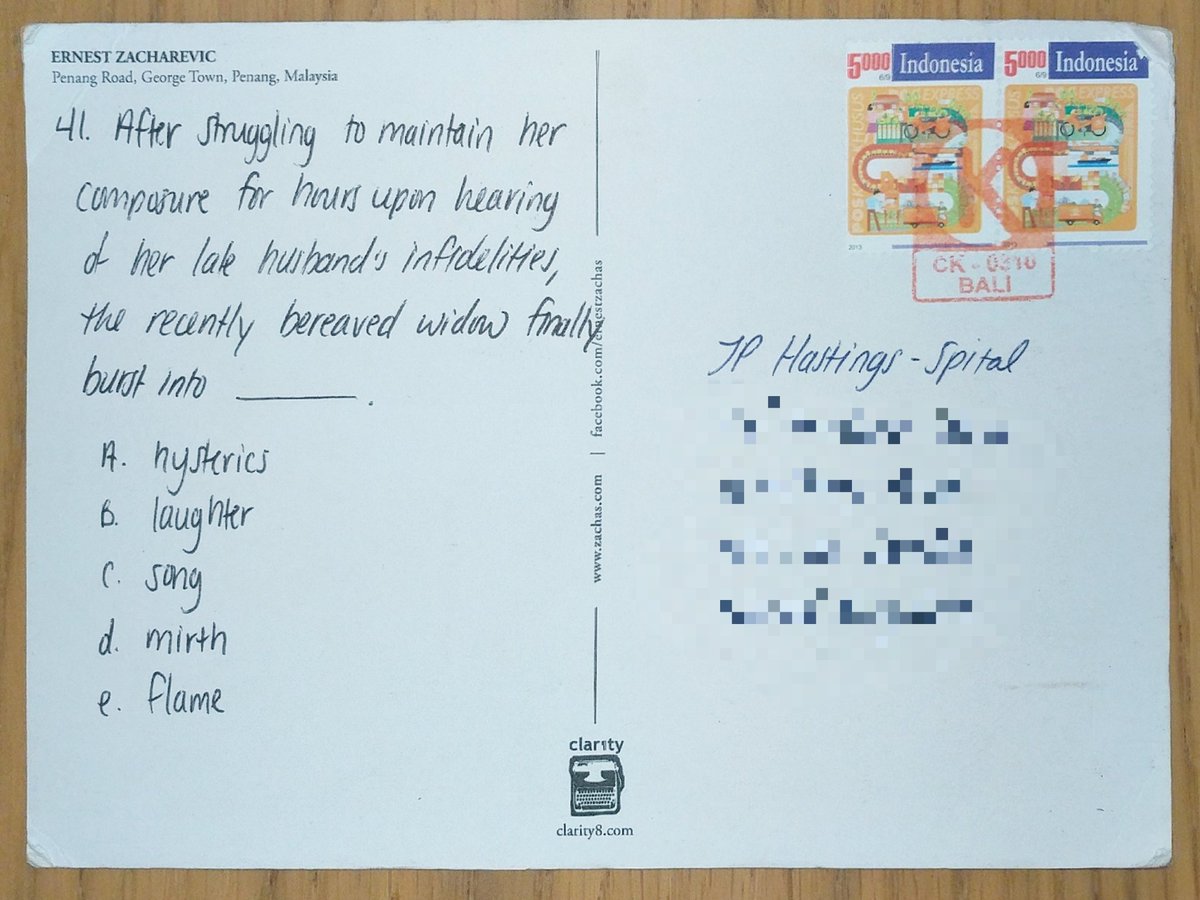 ERNEST ZACHAREVIC
Penang Road, George Town, Penang, Malaysia
41. After struggling to maintain her
composure for hours upon hearing
of her late husband's infidelities,
the recently bereaved widow finally
burst into ________.
A. hysterics
B. laughter
C. song
d. mirth
e. flame
www.zachas.com | facebook.com/ernestzachas
clarity
clarity8.com
5000 Indonesia
6/9
2013
5000 Indonesia
6/9
CK - 0310
BALI
JP Hastings-Spital